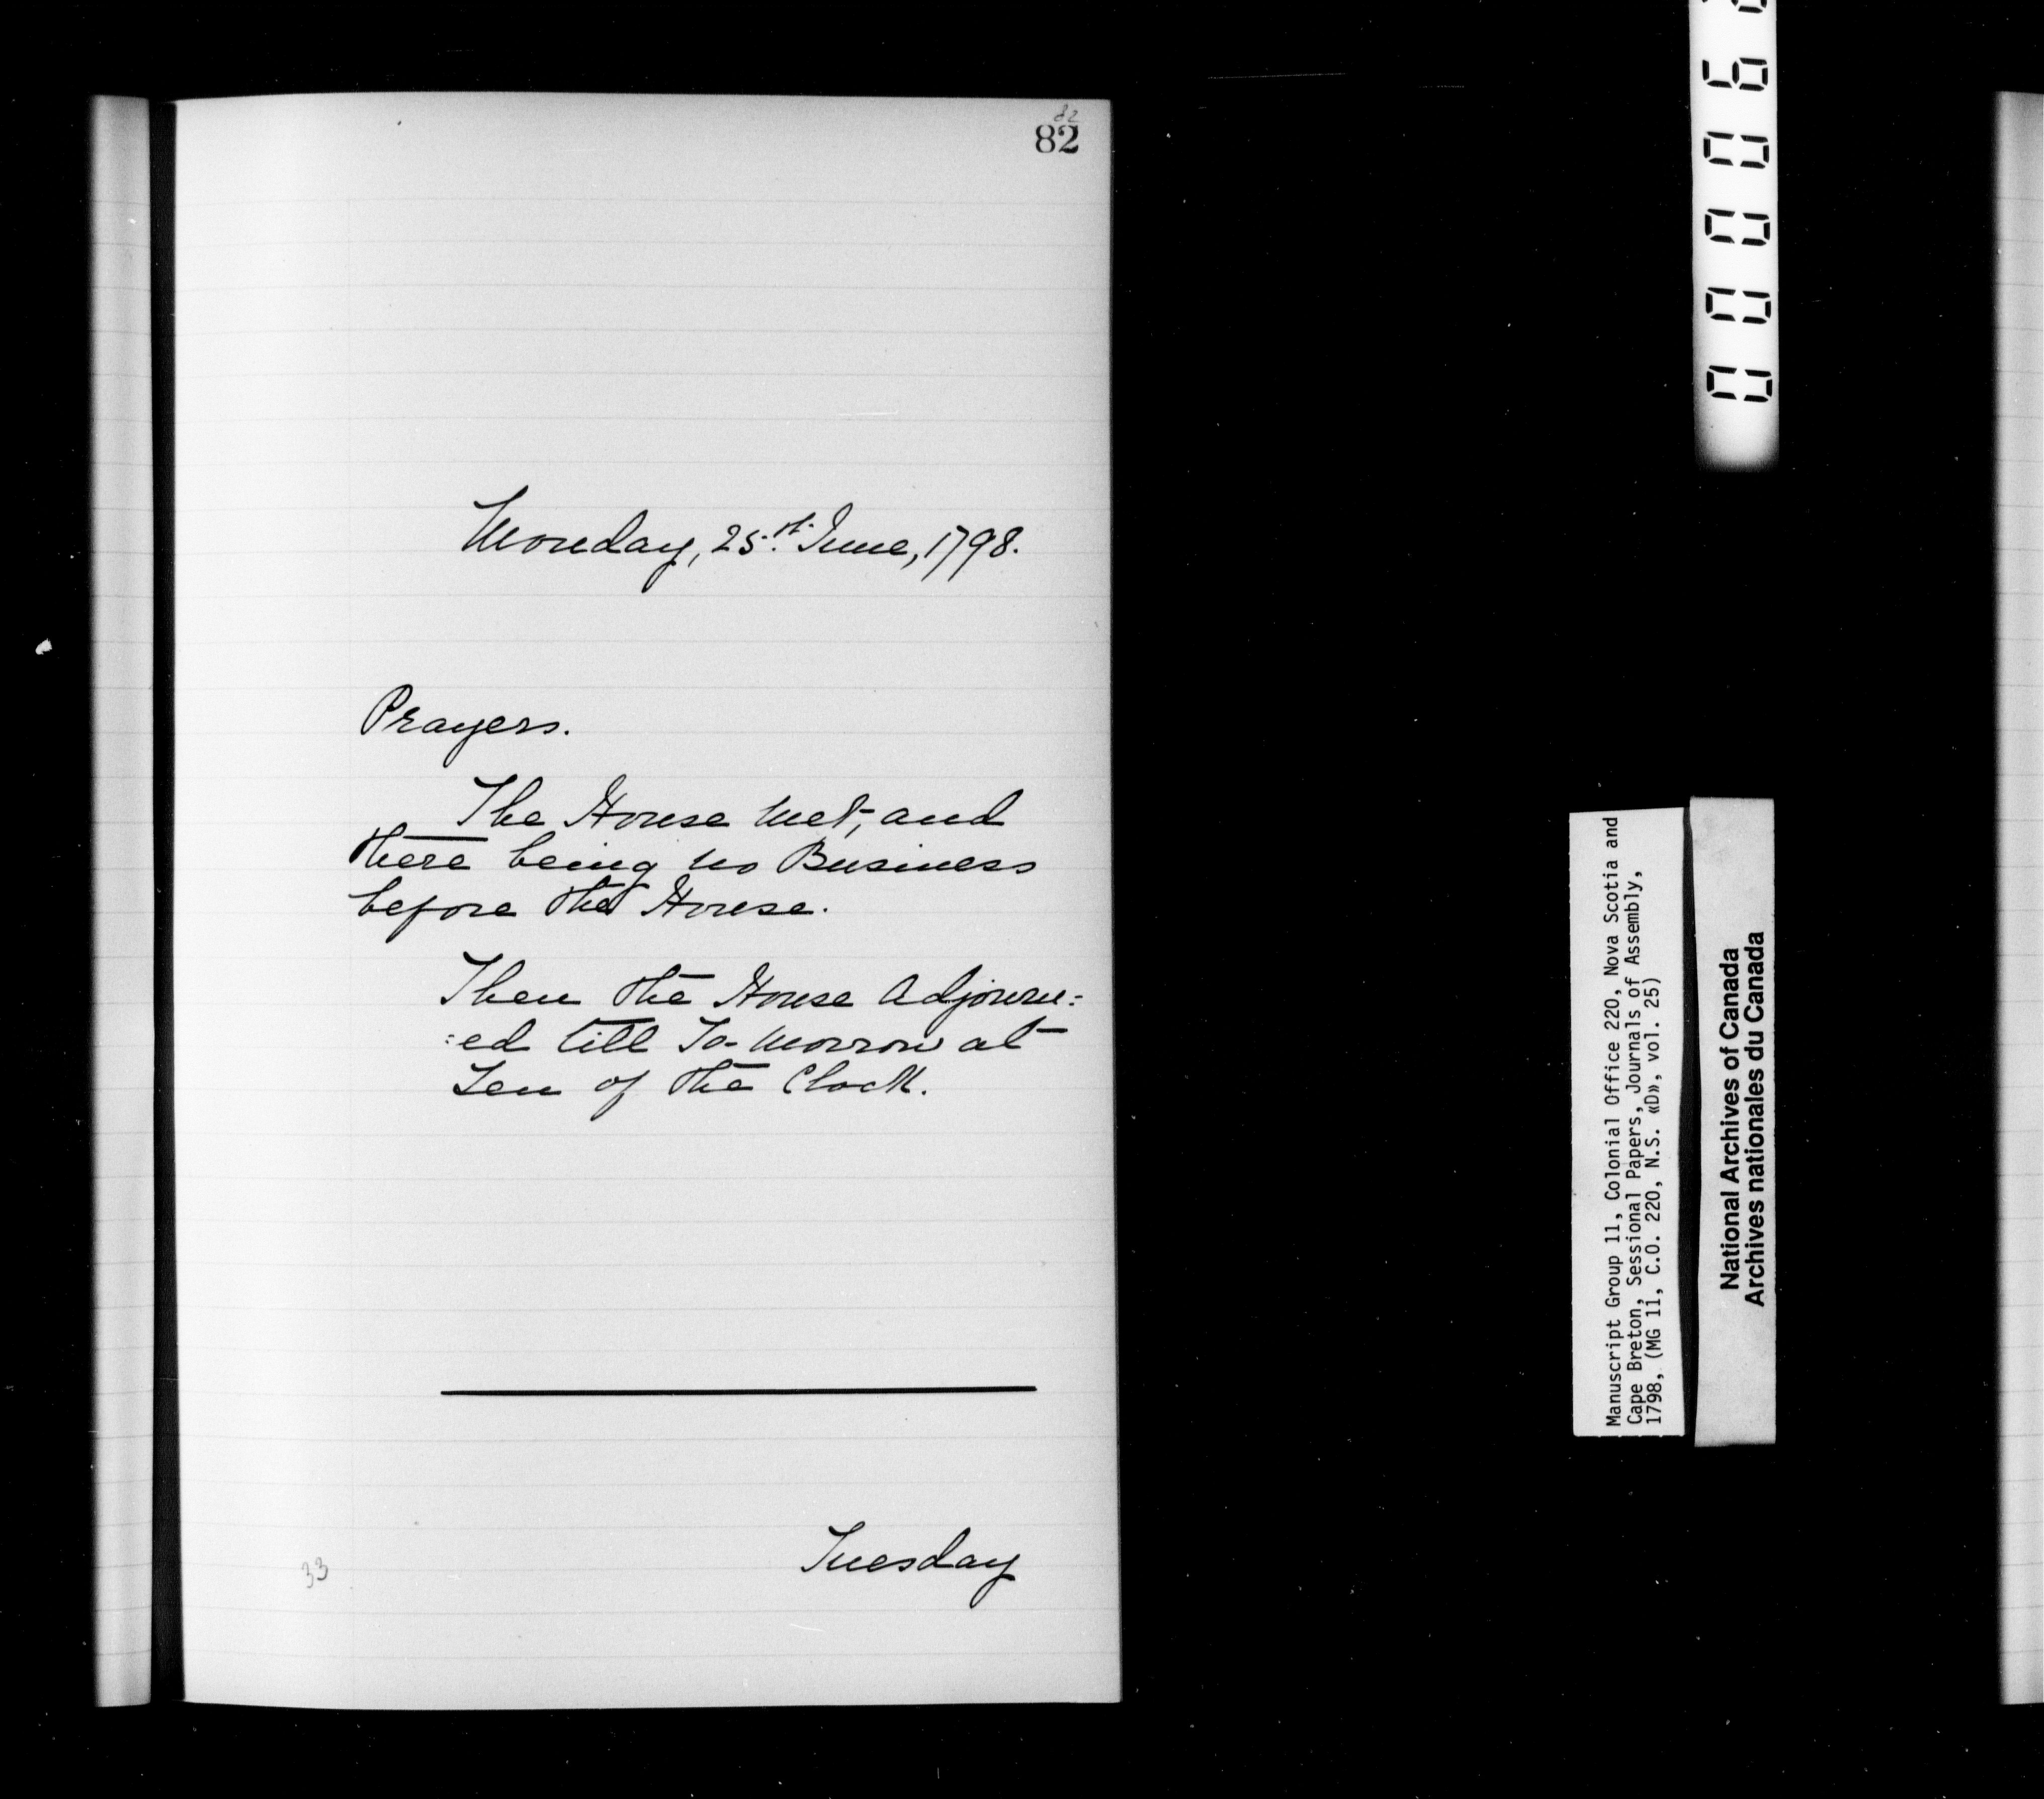 82
82
Monday, 25.th June, 1798.
Prayers.
The House met, and
there being no Business
before the House.
Then the House Adjourn:
:ed till To-morrow at
Ten of the Clock.
Tuesday
33
Manuscript Group 11, Colonial Office 220, Nova Scotia and
Cape Breton, Sessional Papers, Journals of Assembly,
1798, (MG 11, C.O. 220, N.S. «D», vol. 25)
National Archives of Canada
Archives nationales du Canada